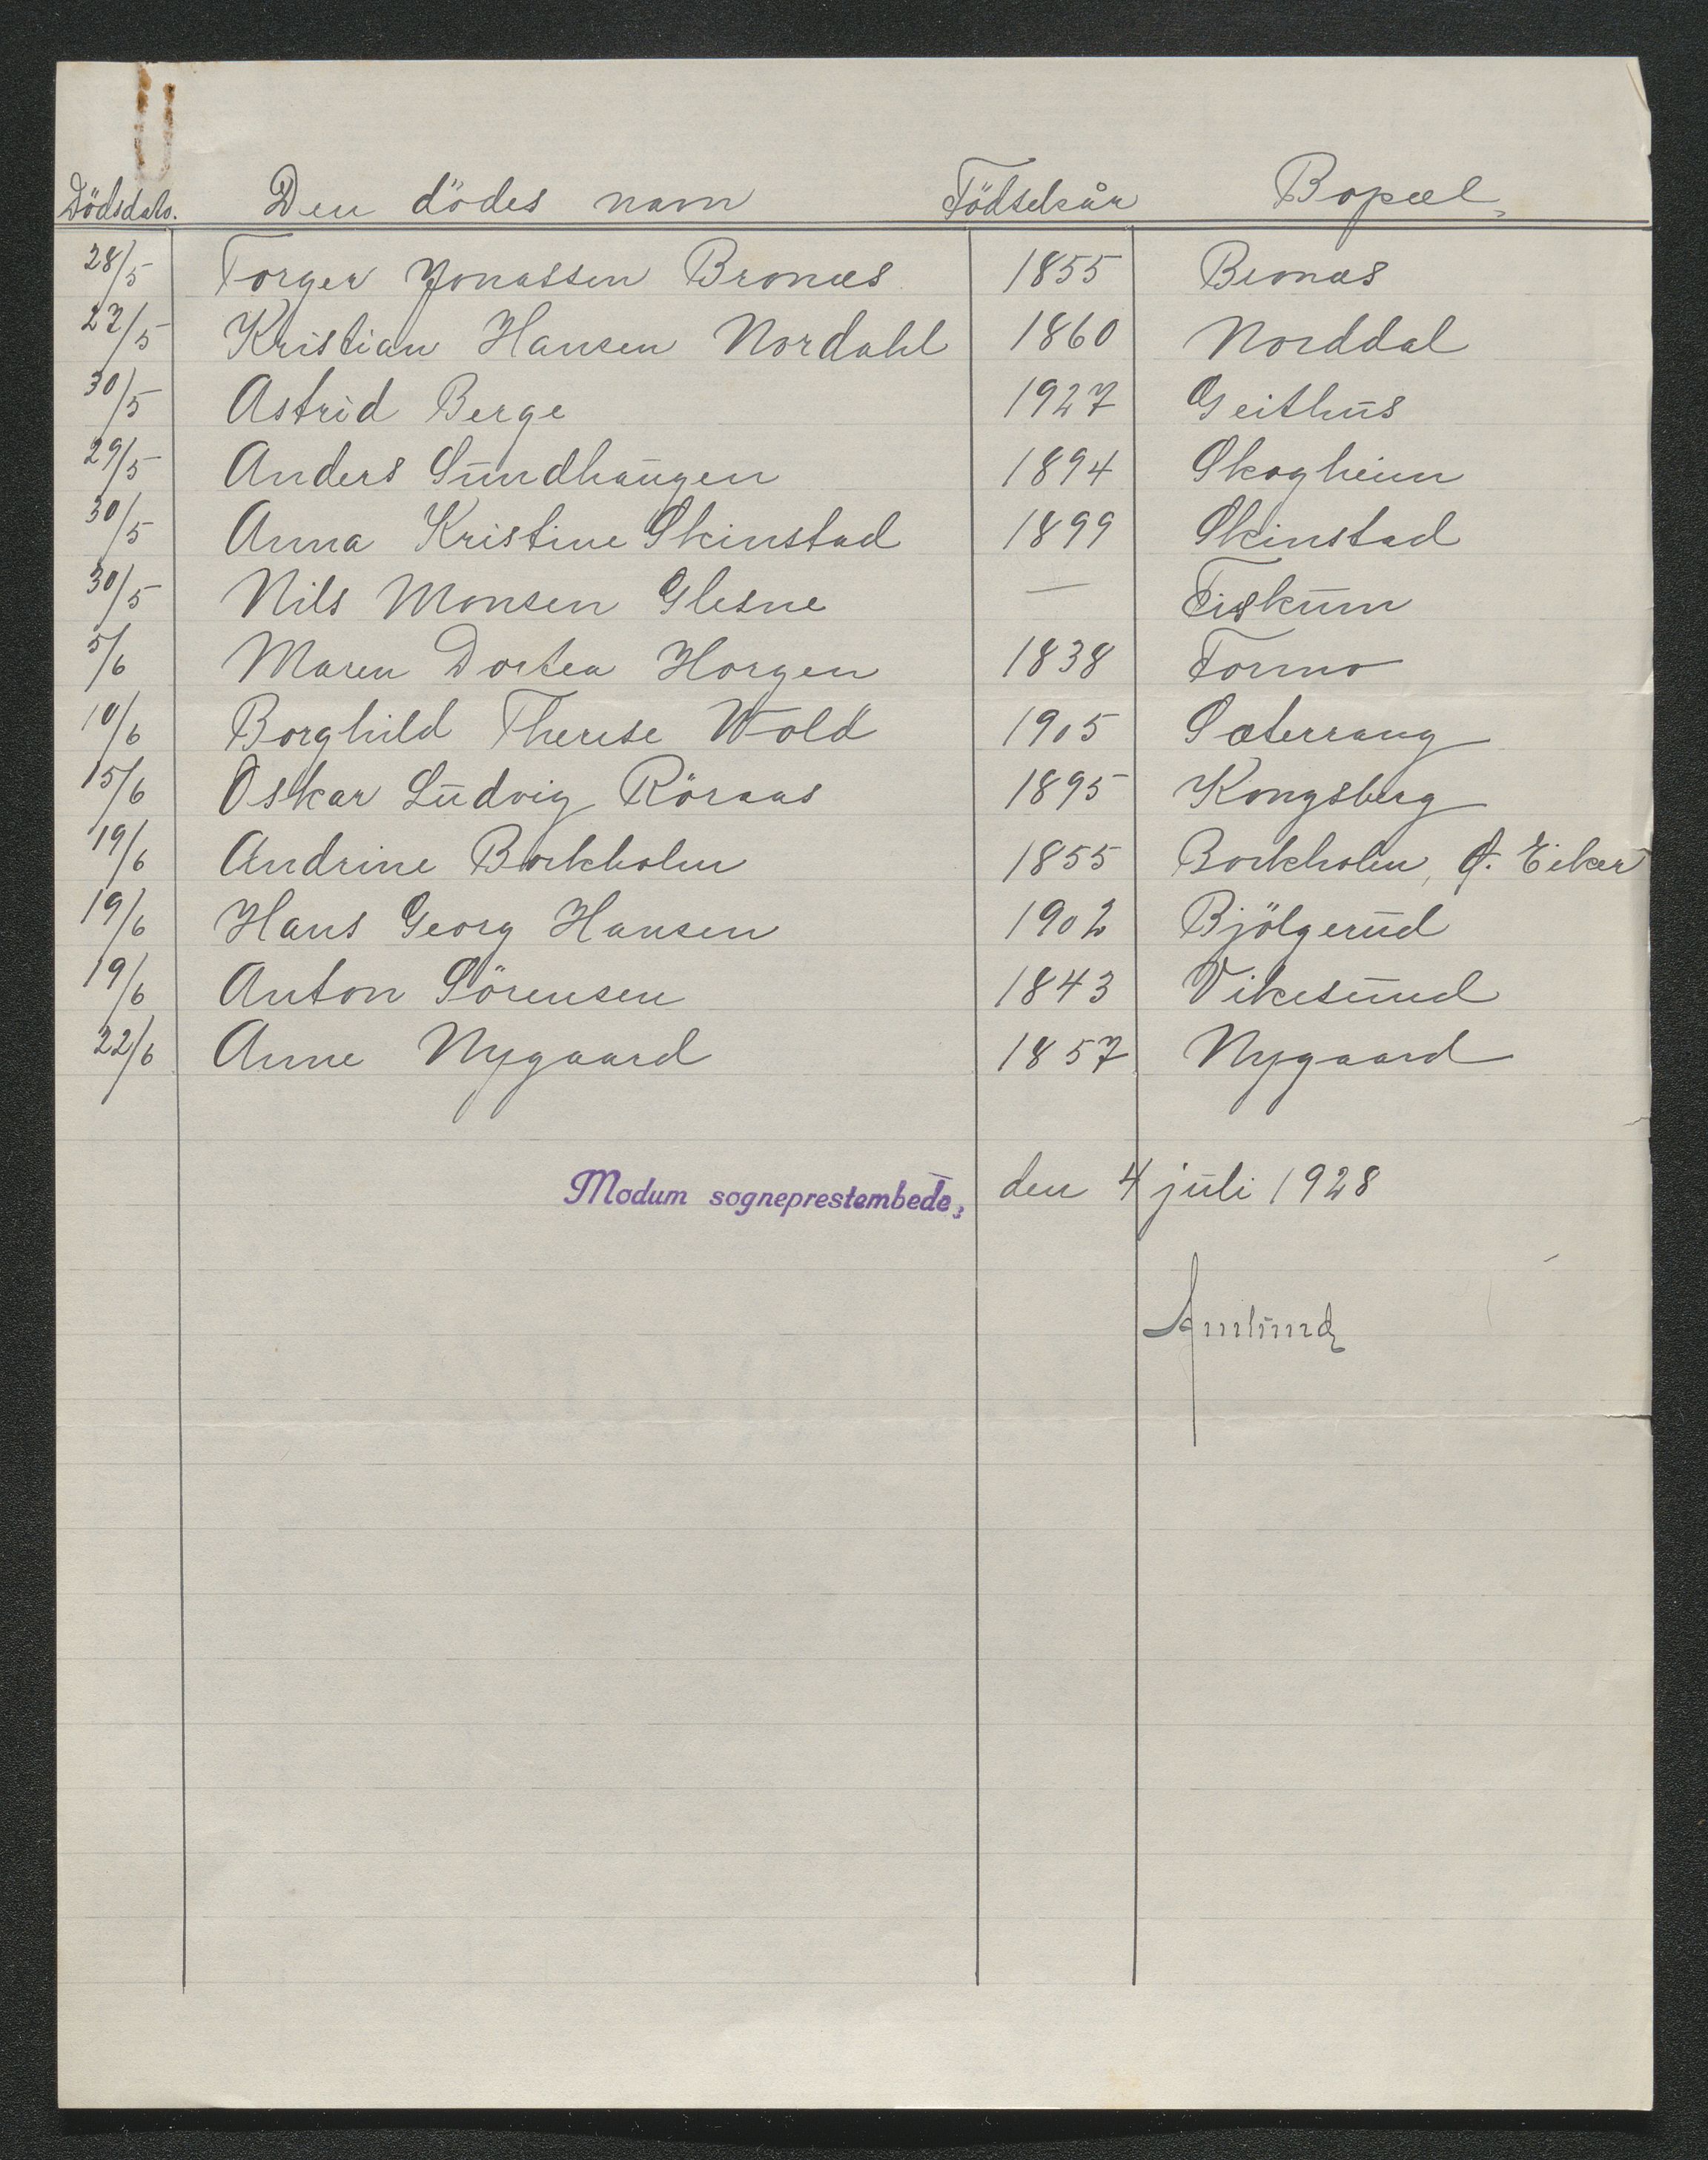 Dödsdato. Den dödes navn Födselsår Bopæl.
28/5 Torger Jonassen Bronæs 1855 Bronæs
27/5 Kristian Hansen Nordahl 1860 Norddal
30/5 Astrid Berge 1927 Geithus
29/5 Anders Sundhaugen 1894 Skogheim
30/5 Anna Kristine Skinstad 1899 Skinstad
30/5 Nils Monsen Glesne — Fiskum
5/6 Maren Dortea Horgen 1838 Formo
10/6 Borghild Therese Wold 1905 Sæterrang
15/6 Oskar Ludvig Röraas 1895 Kongsberg
19/6 Andrine Borkholm 1855 Borkholm, Ø. Eiker
19/6 Hans Georg Hansen 1902 Bjölgerud
19/6 Anton Sörensen 1843 Vikesund
22/6 Anne Nygaard 1857 Nygaard
Modum sogneprestembede, den 4 juli 1928